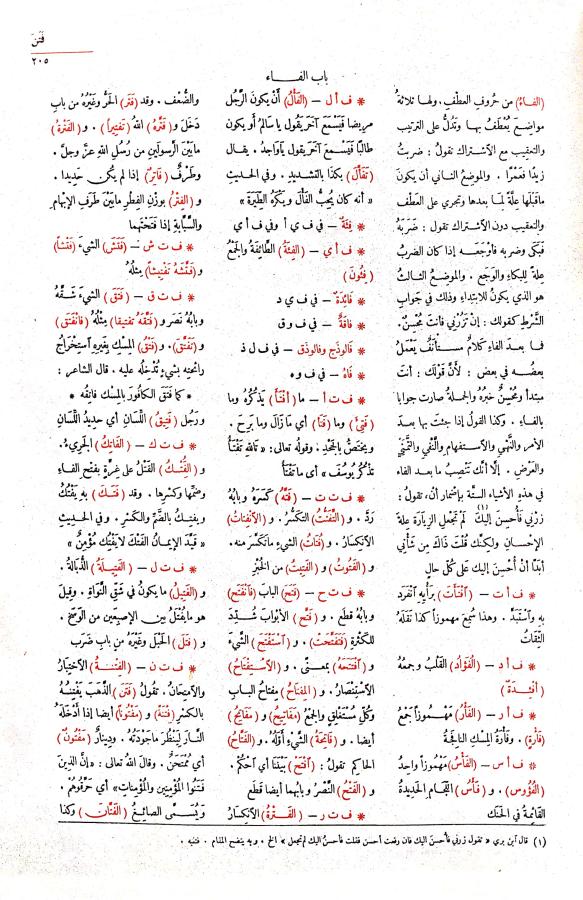 فَتَنَ
٢٠٥
باب الفاء
(الفاءُ) من حُروفِ العطفِ. ولها ثلاثةُ
مواضعَ يُعْطَفُ بها وتَدُلُّ على الترتيبِ
والتعقيبِ مع الاشتراك تقولُ: ضربتُ
زيدًا فعَمْرًا. والموضعُ الثاني أن يكونَ
ماقبلَها عِلّةً لما بعدها وتجري على العطفِ
والتعقيبِ دونَ الاشتراكِ تقول: ضَرَبَهُ
فبَكَى وضربه فأوجَعَه إذا كان الضربُ
عِلةً للبكاءِ والوَجَع. والموضعُ الثالثُ
هو الذي يكونُ للابتداءِ وذلك في جَوابِ
الشّرْط كقولك: إن تَزُرْنِي فأنت مُحْسِنٌ.
فما بعدَ الفاءِ كلامٌ مستأنَفٌ يَعْمَلُ
بعضُه في بعض: لأنّ قَوْلَكَ: أنتَ
مبتدأ ومُحْسِنٌ خبرُهُ والجملةُ صارت جوابا
بالفاء. وكذا القولُ إذا جئتَ بها بعدَ
الأمرِ والنّهْيِ والاستفهامِ والنَّفْيِ والتَّمَنِّي
والعَرْضِ. إلّا أنك تَنْصِبُ ما بعد الفاء
في هذِهِ الأشياءِ الستةِ بإضمارِ أن، تقولُ:
زُرْنِي فَأُحْسِنَ إليكَ (١) لم تَجعَلِ الزيارةَ علةَ
الإحسانِ ولكنّك قُلتَ ذاكَ مِن شأني
أبدًا أنْ أُحْسِنَ إليك على كُلِّ حالٍ
* ف أ ت — (افْتَأَتَ) بِرَأْيِهِ انْفَرَدَ
به واسْتَبَدَّ. وهذا سُمِعَ مهموزًا كذا نَقَلَهُ
الثِّقَاتُ
* ف أ د — (الفُؤَادُ) القَلْبُ وجمعُهُ
(أَفْئِدَةٌ)
* ف أ ر — (الفَأْرُ) مَهْمُوزًا جَمْعُ
(فَأْرَةٍ). وفَأْرَةُ المِسْكِ النافجةُ
* ف أ س — (الفَأْسُ) مَهْمُوزًا واحدُ
(الفُؤُوسِ). و (فَأْسُ) اللِّجَامِ الحديدةُ
القائمةُ في الحَنَكِ
* ف أ ل — (الفَأْلُ) أنْ يكونَ الرَّجُلُ
مريضا فيَسْمَعَ آخَرَ يقول يا سالمُ أو يكون
طالبًا فيَسْمَعَ آخَرَ يقول ياواجدُ. يقال
(تَفَأَّلَ) بكذا بالتشديدِ. وفي الحديثِ
« أنه كان يُحِبُّ الفَأْلَ ويَكْرَهُ الطِّيَرَةَ »
* فِئَةٌ — في ف ي أ وفي ف أ ي
* ف أ ي — (الفِئَةُ) الطّائِفَةُ والجَمْعُ
(فِئُونَ)
* فائِدةٌ — في ف ي د
* فاقةٌ — في ف و ق
* فالُوذَج وفالوذَق — في ف ل ذ
* فَاهُ — في ف و ه
* ف ت أ — ما (أفْتَأَ) يَذكُرُهُ وما
(فَتِئَ) وما (فَتَأَ) أي ما زَالَ وما بَرِحَ.
ويختصُّ بالجَحْدِ. وقوله تعالى: « تاللهِ تَفْتَأُ
تَذْكُرُ يُوسُفَ » أي ما تَفْتَأُ
* ف ت ت — (فَتَّهُ) كَسَرَهُ وبابُهُ
رَدَّ. و (التَّفَتُّتُ) التكسُّرُ. و (الانْفِتَاتُ)
الانْكِسارُ. و (فُتَاتُ) الشيءِ ماتكَسَّرَ منه.
و (الفَتُوتُ) و (الفَتِيتُ) من الخُبْزِ
* ف ت ح — (فَتَحَ) البابَ (فَانْفَتَحَ)
وبابُهُ قَطَعَ. و (فَتَّحَ) الأبْوَابَ شُدِّدَ
للكَثْرةِ (فَتَفَتَّحَتْ). و (اسْتَفْتَحَ) الشيْءَ
و (افْتَتَحَهُ) بمعنًى. و (الاسْتِفْتَاحُ)
الاسْتِنْصَارُ. و (المِفْتَاحُ) مِفتاحُ البابِ
وكُلِّ مُسْتَغْلِقٍ والجَمْعُ (مَفَاتِيحُ) و (مَفَاتِحُ)
أيضا. و (فاتِحَةُ) الشَّيْءِ أَوَّلُهُ. و (الفَتَّاحُ)
الحاكم تقولُ: (افْتَحْ) بَيْنَنَا أي احْكُمْ.
و (الفَتْحُ) النَّصْرُ وبابُهما أيضا قَطَعَ
* ف ت ر — (الفَتْرَةُ) الانكِسَارُ
والضُّعْف. وقد (فَتَرَ) الحَرُّ وغَيْرُهُ من بابِ
دَخَلَ و (فَتَّرَهُ) اللهُ (تَفْتِيرًا). و (الفَتْرَةُ)
مابَيْنَ الرَّسولَينِ من رُسُلِ اللهِ عزّ وجلّ.
وطَرْفٌ (فاتِرٌ) إذا لم يكن حديدا.
و (الفِتْرُ) بوزنِ الفِطْرِ مابينَ طَرَفِ الإبْهامِ
والسَّبَّابَةِ إذا فَتَحْتَهما
* ف ت ش — (فَتَشَ) الشيءَ (فَتْشًا)
و (فَتَّشَهُ تَفْتِيشًا) مِثلُهُ
* ف ت ق — (فَتَقَ) الشيءَ شَقَّهُ
وبابُهُ نَصَرَ و (فَتَّقَهُ تفتيقا) مِثْلُهُ (فانْفَتَقَ)
و (تَفَتَّقَ). و (فَتْقُ) المِسْكِ بغيرِهِ اسْتِخْرَاجُ
رائحتِهِ بشيءٍ تُدْخِلُه عليه. قال الشاعر:
* كما فَتَقَ الكافورَ بالمِسْكِ فاتِقُهْ *
ورَجُلٌ (فَتِيقُ) اللِّسَانِ أي حديدُ اللِّسانِ
* ف ت ك — (الفاتِكُ) الجَرِيءُ.
و (الفَتْكُ) القَتْلُ على غِرَّةٍ بفتحِ الفاءِ
وضَمِّها وكسرها. وقد (فَتَكَ) به يَفْتُكُ
ويفتِكُ بالضَّمِّ والكَسْرِ. وفي الحديثِ
« قَيَّدَ الإيمانُ الفَتْكَ لايَفْتِكُ مُؤْمِنٌ »
* ف ت ل — (الفَتِيلَةُ) الذُّبَالَةُ.
و (الفَتِيلُ) ما يكونُ في شَقِّ النَّوَاةِ. وقيل
هو مايُفْتَلُ بين الإصبعين من الوَسَخِ.
و (فَتَلَ) الحَبْلَ وغَيْرَهُ من باب ضَرَبَ
* ف ت ن — (الفِتْنَةُ) الاخْتِبَارُ
والامتِحانُ. تقولُ (فَتَنَ) الذَّهَبَ يفْتِنُهُ
بالكسرِ (فِتْنَةً) و (مَفْتُونًا) أيضا إذا أدْخَلَهُ
النَّارَ لِيَنْظُرَ ماجَوْدَتُهُ. ودِينارٌ (مَفْتُونٌ)
أي مُمْتَحَنٌ. وقال اللهُ تعالى: « إنَّ الَّذِينَ
فَتَنُوا المُؤْمِنِينَ والمُؤْمِناتِ» أي حَرَّقُوهُمْ.
ويُسَمَّى الصائغُ (الفَتَّانَ) وكذا
(١) قال ابن بري « تقول زرني فأحسنَ اليك فان رفعت أحسن فقلت فأحسنُ اليك لم تجعل » الخ. وبه يتضح المقام. فتنبه.